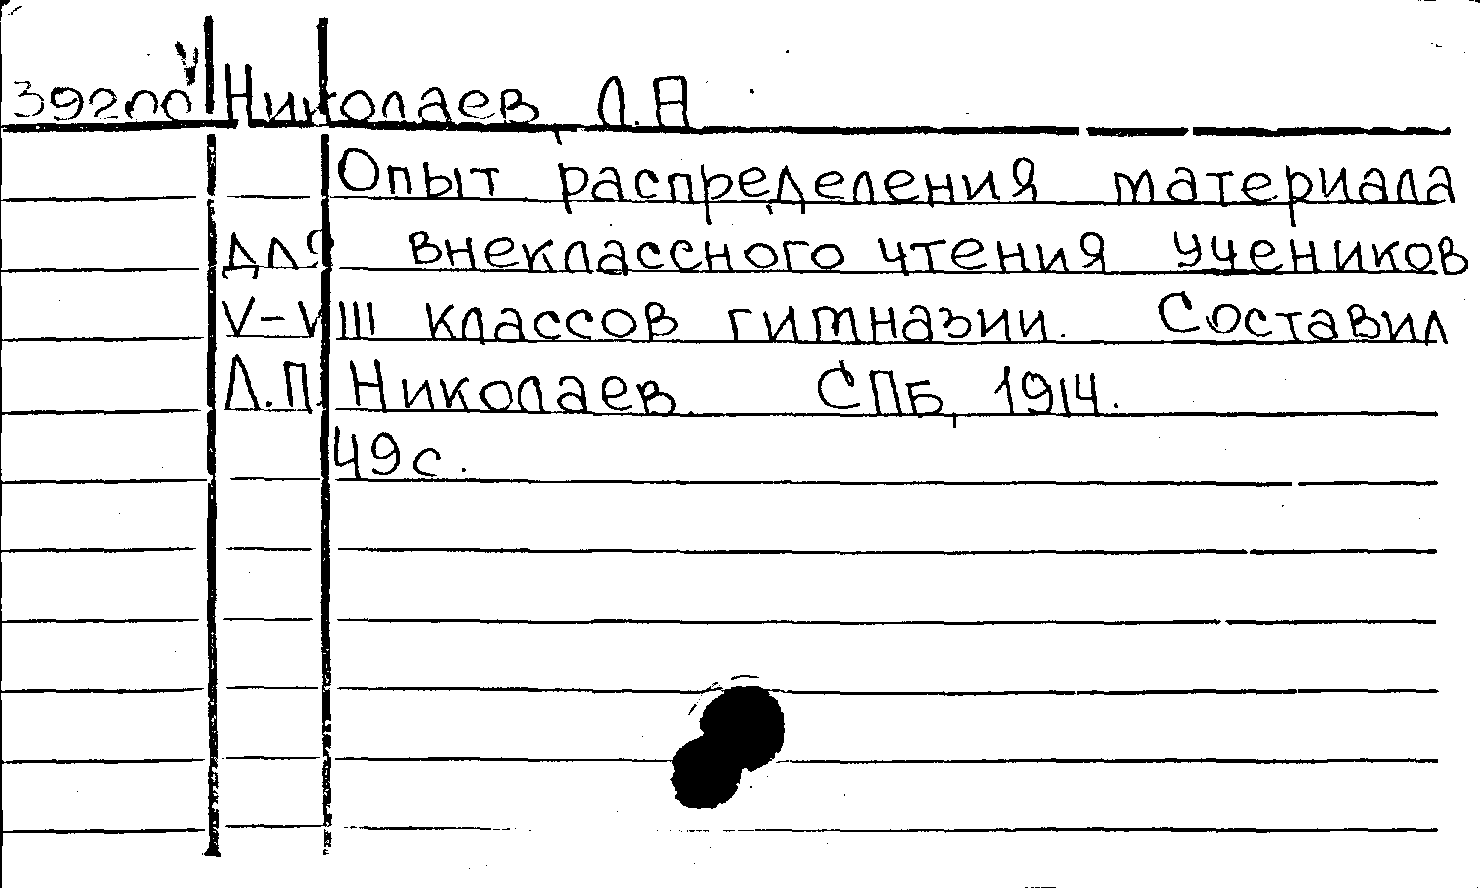 39200 Николаев, Л.П
Опыт распределения материала
для внеклассного чтения учеников
V-VIII классов гимназии. Составил
Л.П. Николаев. СПБ, 1914.
49с.